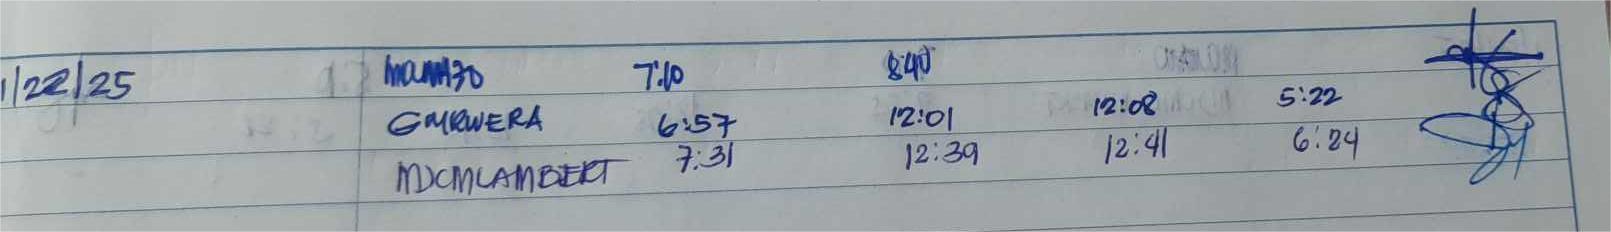 1/22/25 7:10 8:40
GMRWERA 6:57 12:01 12:08 5:22
MJCMLAMBERT 7:31 12:39 12:41 6:24